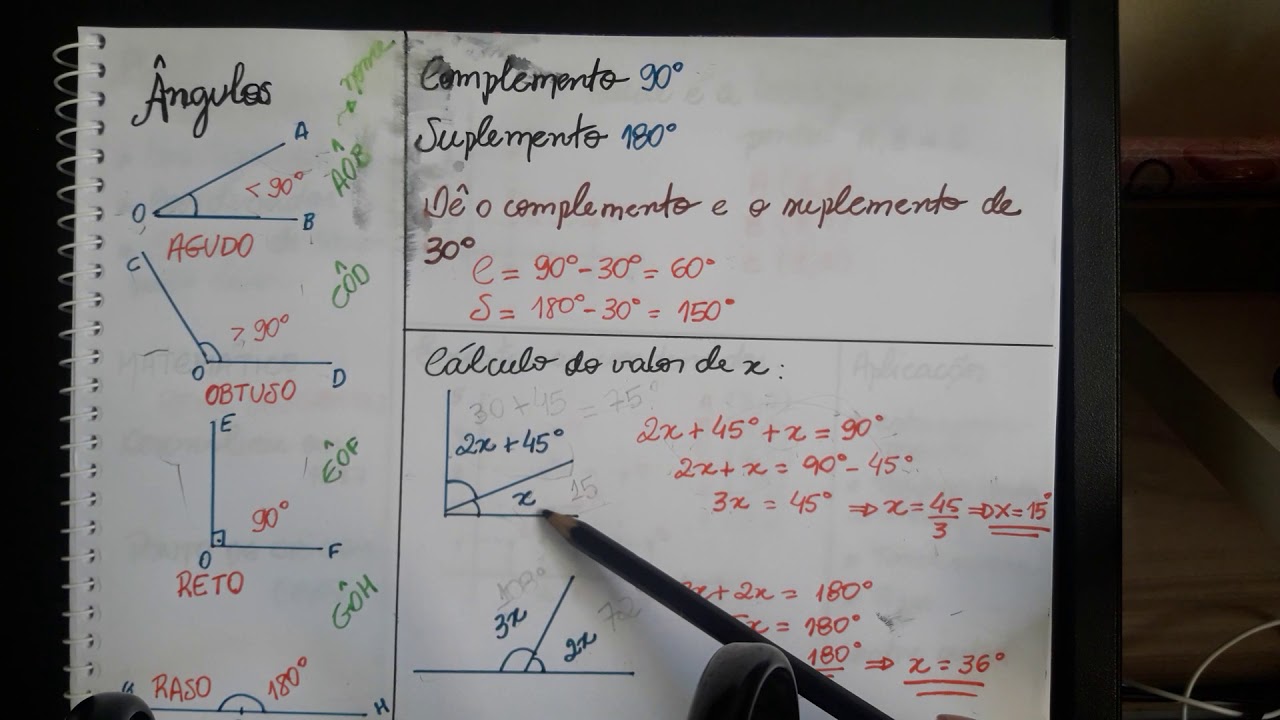 Ângulos
AÔB → nome
A
< 90°
O
B
AGUDO
C
CÔD
> 90°
O
D
OBTUSO
E
EÔF
90°
O
F
RETO
GÔH
RASO
180°
H
Complemento 90°
Suplemento 180°
Dê o complemento e o suplemento de
30°
C = 90° - 30° = 60°
S = 180° - 30° = 150°
Cálculo do valor de x:
30 + 45 = 75°
2x + 45°
x
15
2x + 45° + x = 90°
2x + x = 90° - 45°
3x = 45° ⇒ x = 45/3 ⇒ x = 15°
3x
2x
72
x + 2x = 180°
x = 180°
180° ⇒ x = 36°